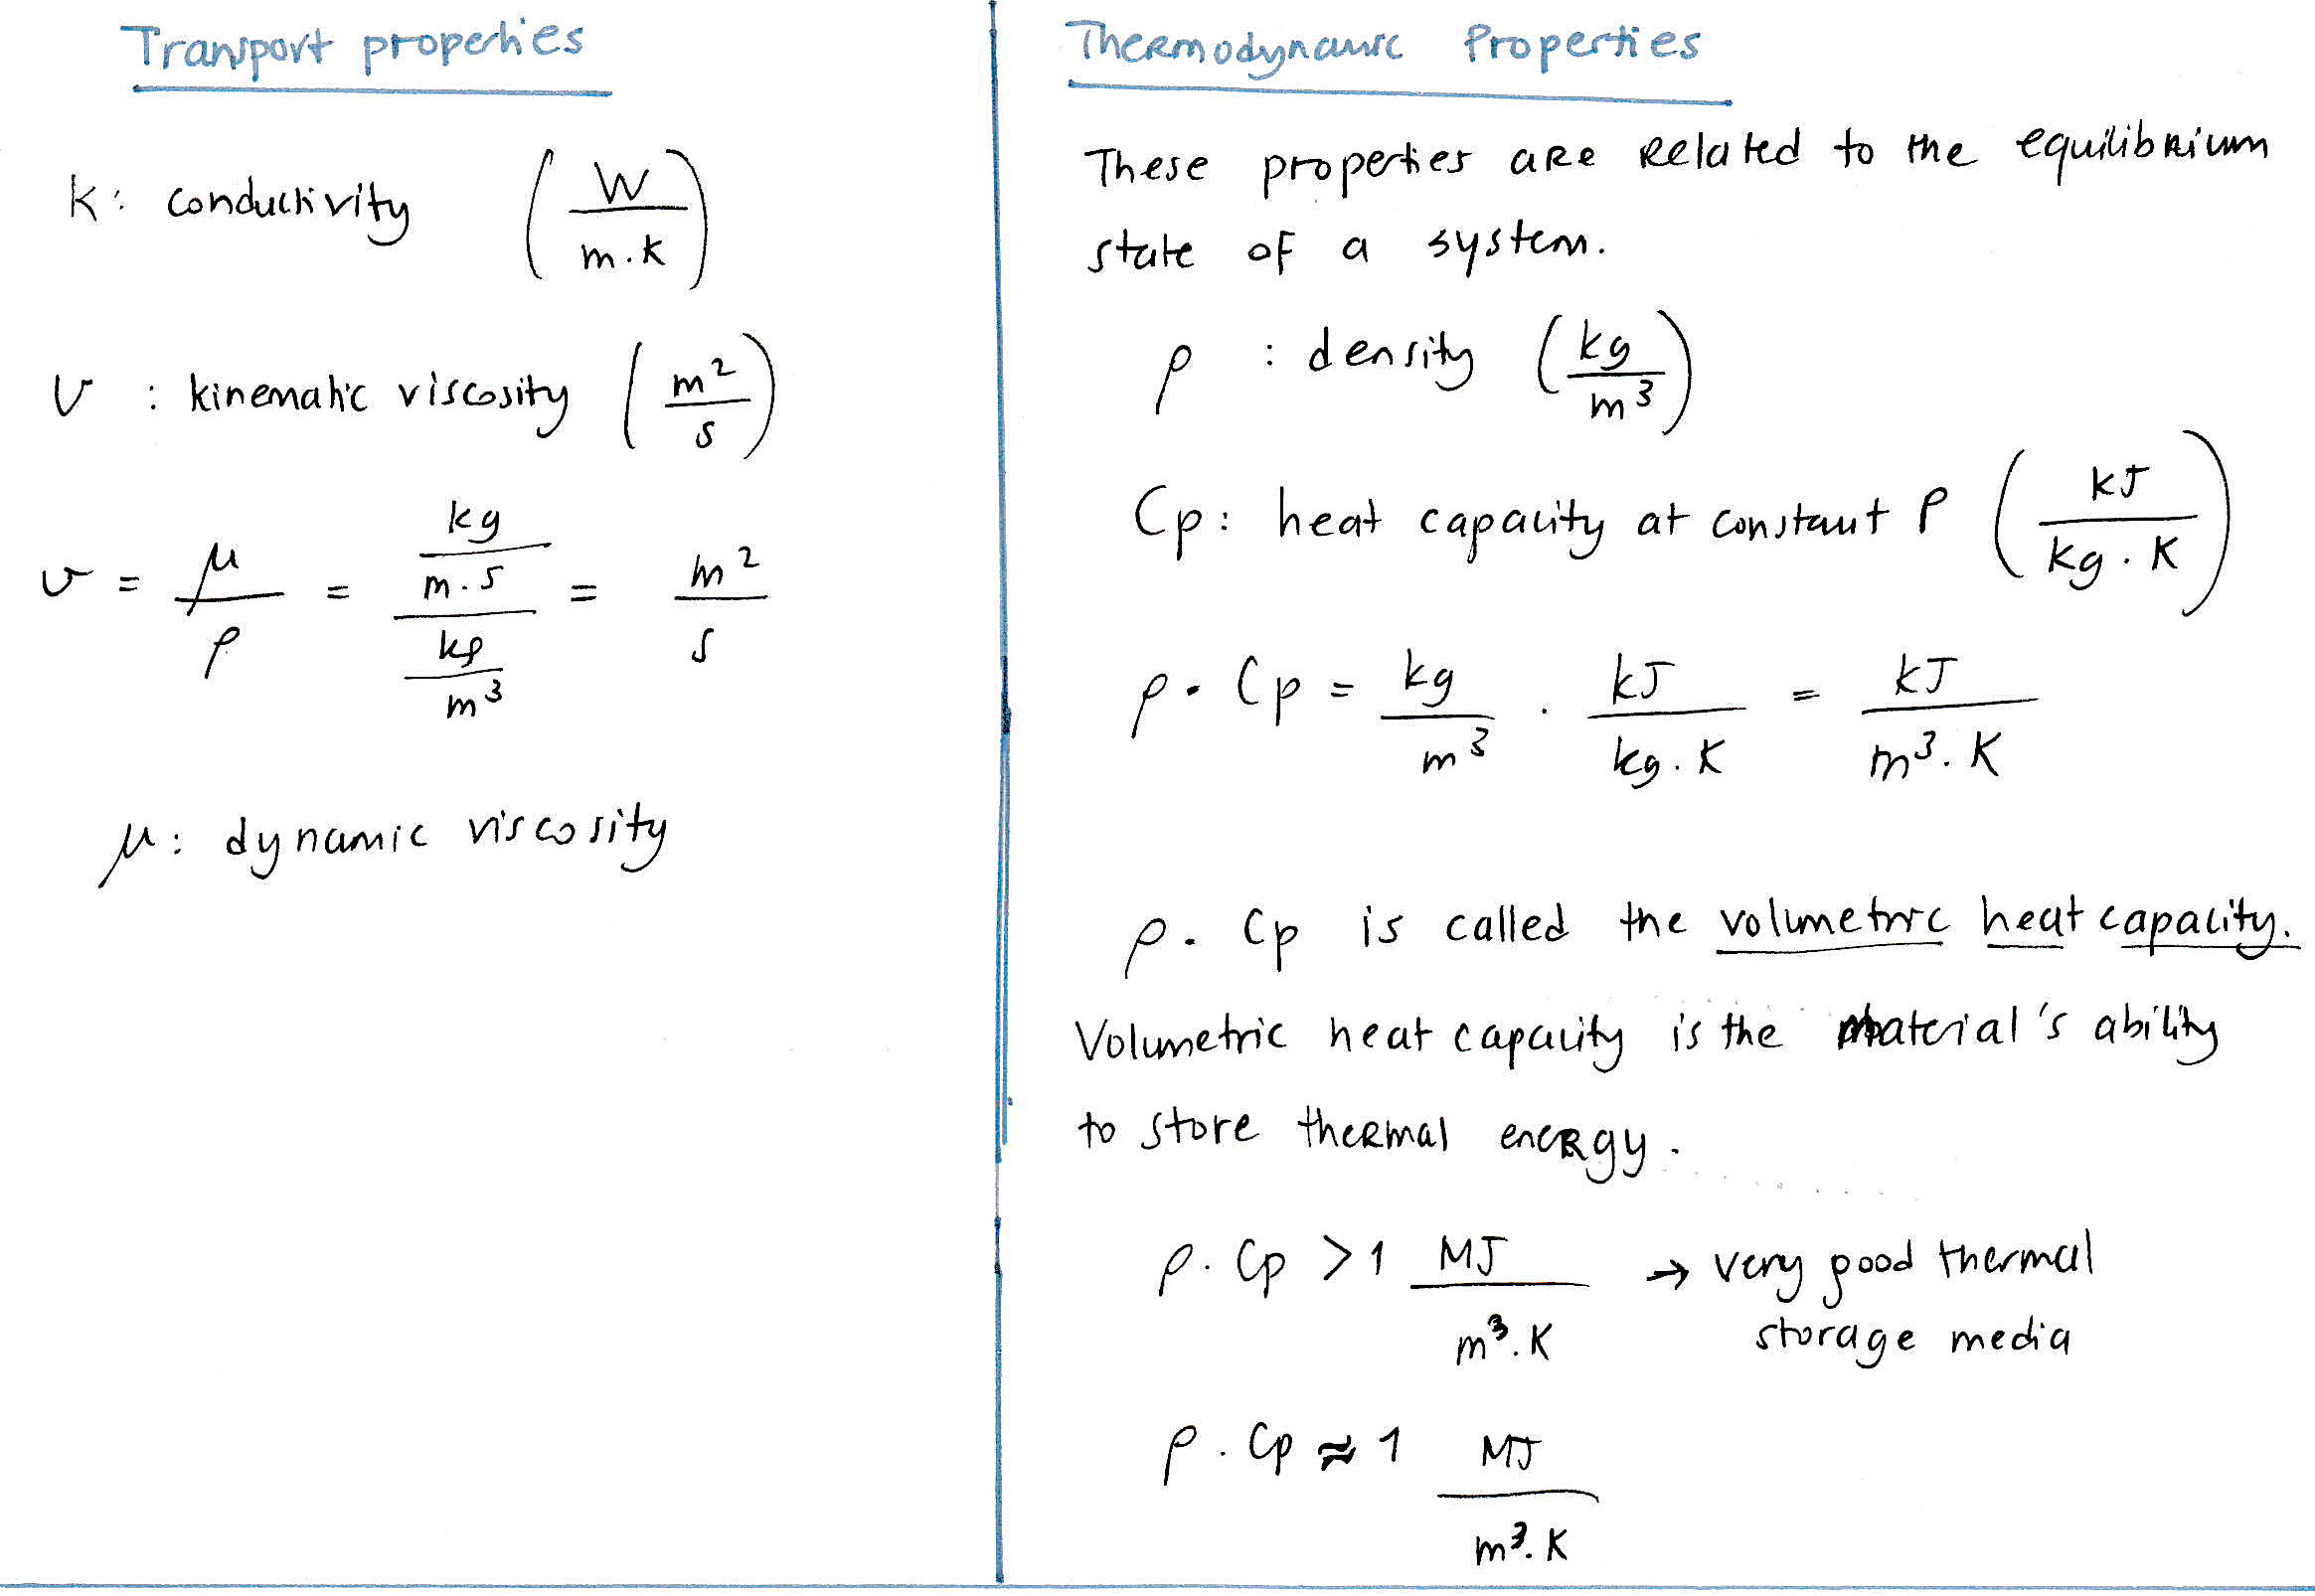 Transport properties
k: conductivity (W / m.k)
υ : kinematic viscosity (m² / s)
υ = μ / ρ = (kg / m.s) / (kg / m³) = m² / s
μ: dynamic viscosity
Thermodynamic Properties
These properties are related to the equilibrium
state of a system.
ρ : density (kg / m³)
Cp: heat capacity at constant P (kJ / kg.K)
ρ. Cp = kg / m³ . kJ / kg.K = kJ / m³.K
ρ. Cp is called the volumetric heat capacity.
Volumetric heat capacity is the material's ability
to store thermal energy.
ρ. Cp > 1 MJ / m³.K → very good thermal
storage media
ρ. Cp ≈ 1 MJ / m³.K